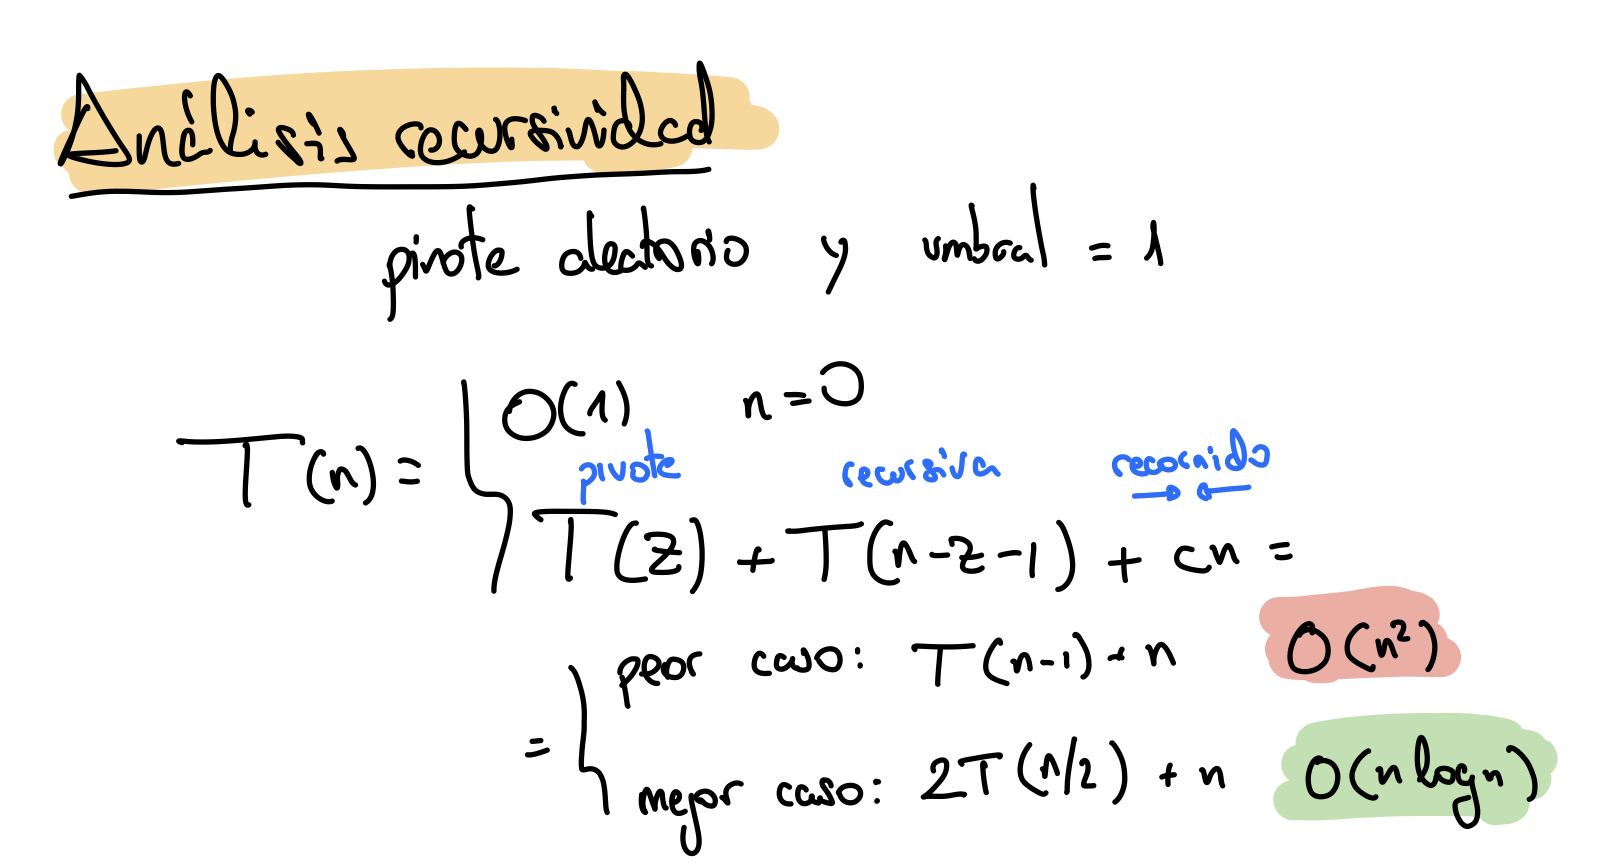 Análisis recursividad
pivote aleatorio y umbral = 1
T(n) = { O(1) n = 0
pivote recursiva recorrido
T(z) + T(n-z-1) + cn =
= { peor caso: T(n-1) + n O(n²)
mejor caso: 2T(n/2) + n O(n log n)